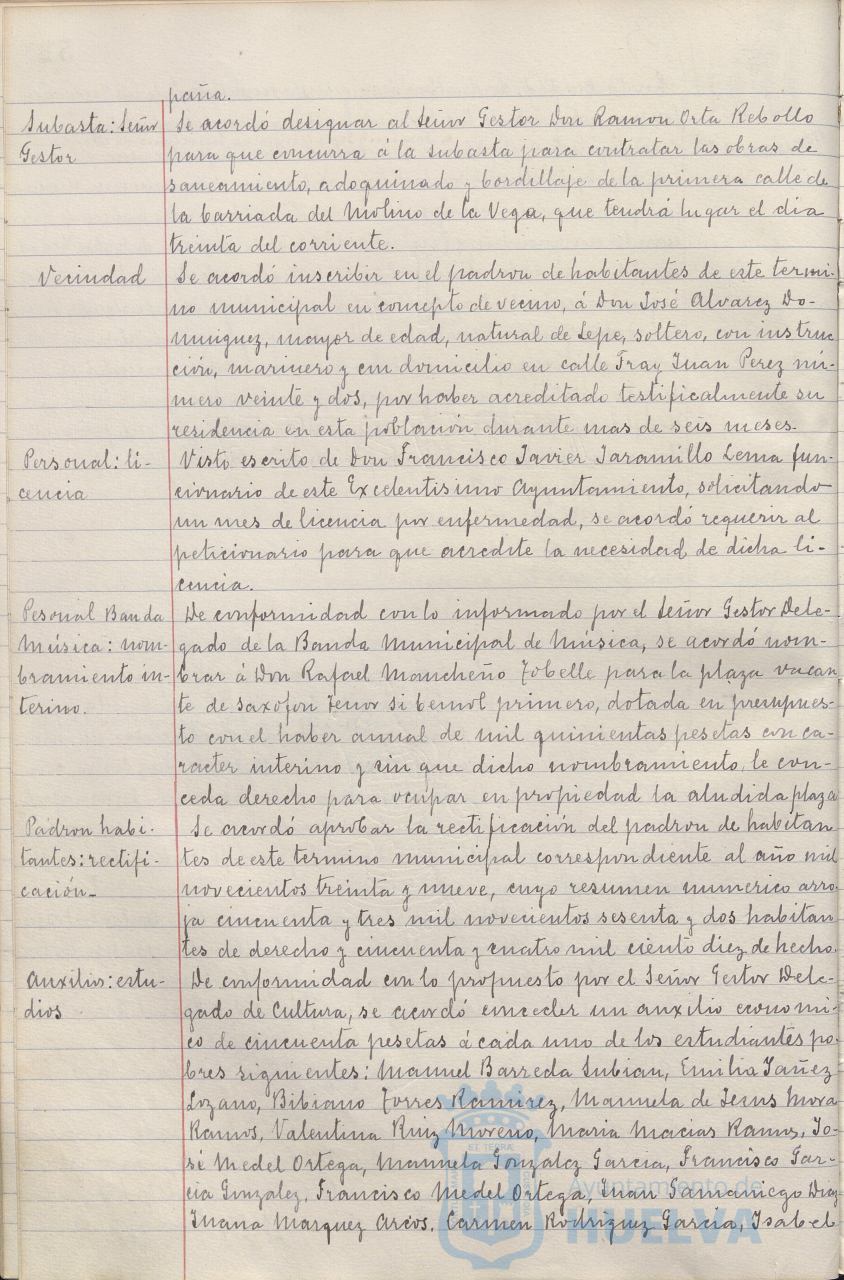 paña.
Subasta: Señor
Gestor
Se acordó designar al Señor Gestor Don Ramon Orta Rebollo
para que concurra á la subasta para contratar las obras de
saneamiento, adoquinado y bordillaje de la primera calle de
la barriada del Molino de la Vega, que tendrá lugar el dia
treinta del corriente.
Vecindad
Se acordó inscribir en el padron de habitantes de este termi-
no municipal en concepto de vecino, á Don José Alvarez Do-
minguez, mayor de edad, natural de Lepe, soltero, con instruc
ción, marinero y con domicilio en calle Fray Juan Perez nú-
mero veinte y dos, por haber acreditado testificalmente su
residencia en esta población durante mas de seis meses.
Personal: li-
cencia
Visto escrito de Don Francisco Javier Jaramillo Lema fun-
cionario de este Excelentisimo Ayuntamiento, solicitando
un mes de licencia por enfermedad, se acordó requerir al
peticionario para que acredite la necesidad de dicha li-
cencia.
Pesonal Banda
Música: nom-
bramiento in-
terino.
De conformidad con lo informado por el Señor Gestor Dele-
gado de la Banda Municipal de Música, se acordó nom-
brar á Don Rafael Mancheño Jobelle para la plaza vacan
te de saxofon tenor si bemol primero, dotada en presupues-
to con el haber anual de mil quinientas pesetas con ca-
racter interino y sin que dicho nombramiento, le con-
ceda derecho para ocupar en propiedad la aludida plaza
Padron habi-
tantes: rectifi-
cación.-
Se acordó aprobar la rectificación del padron de habitan
tes de este termino municipal correspondiente al año mil
novecientos treinta y nueve, cuyo resumen numerico arro-
ja cincuenta y tres mil novecientos sesenta y dos habitan
tes de derecho y cincuenta y cuatro mil ciento diez de hecho.
Auxilios: estu-
dios
De conformidad con lo propuesto por el Señor Gestor Dele-
gado de Cultura, se acordó conceder un auxilio economi-
co de cincuenta pesetas á cada uno de los estudiantes po-
bres siguientes: Manuel Barreda Subian, Emilia Yañez
Lozano, Bibiano Torres Ramirez, Manuela de Jesus Mora
Ramos, Valentina Ruiz Moreno, Maria Macias Ramos, Jo-
sé Medel Ortega, Manuela Gonzalez Garcia, Francisco Gar-
cia Gonzalez, Francisco Medel Ortega, Juan Samaniego Diaz
Juana Marquez Arcos, Carmen Rodriguez Garcia, Isabel
Ayuntamiento de
HUELVA